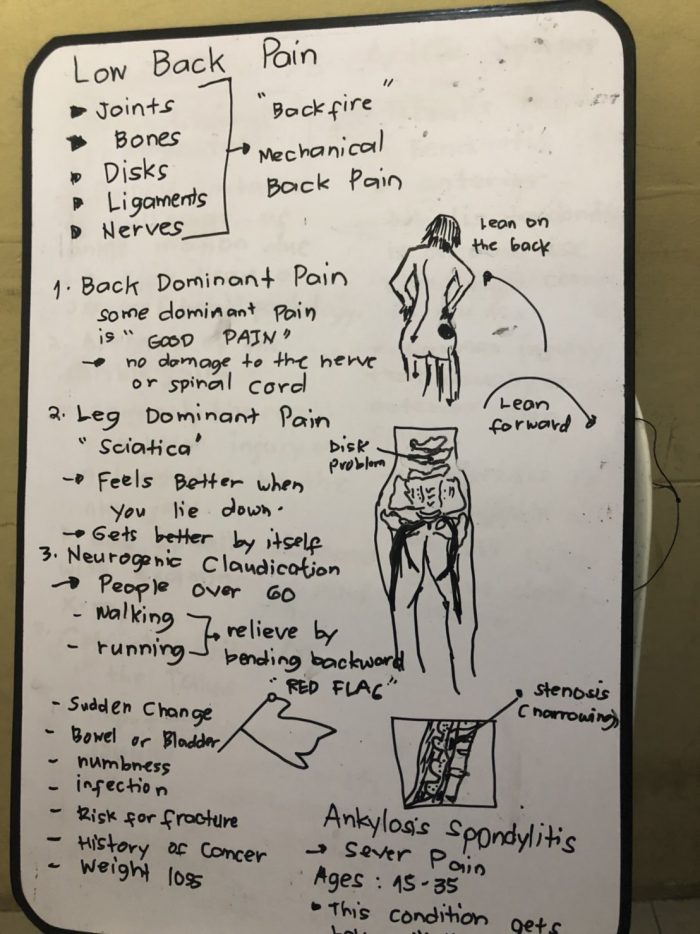 Low Back Pain
Joints
Bones
Disks
Ligaments
Nerves
"Backfire"
Mechanical
Back Pain
Lean on
the back
1. Back Dominant Pain
some dominant Pain
is "GOOD PAIN"
no damage to the nerve
or spinal cord
Lean
forward
2. Leg Dominant Pain
"Sciatica"
Feels Better when
you lie down.
Gets better by itself
Disk
problem
3. Neurogenic Claudication
People over 60
- walking
- running
relieve by
bending backward
"RED FLAG"
- Sudden Change
- Bowel or Bladder
- numbness
- infection
- Risk for fracture
- History of Cancer
- Weight loss
stenosis
(narrowing)
Ankylosis Spondylitis
Sever Pain
Ages : 15-35
This condition gets